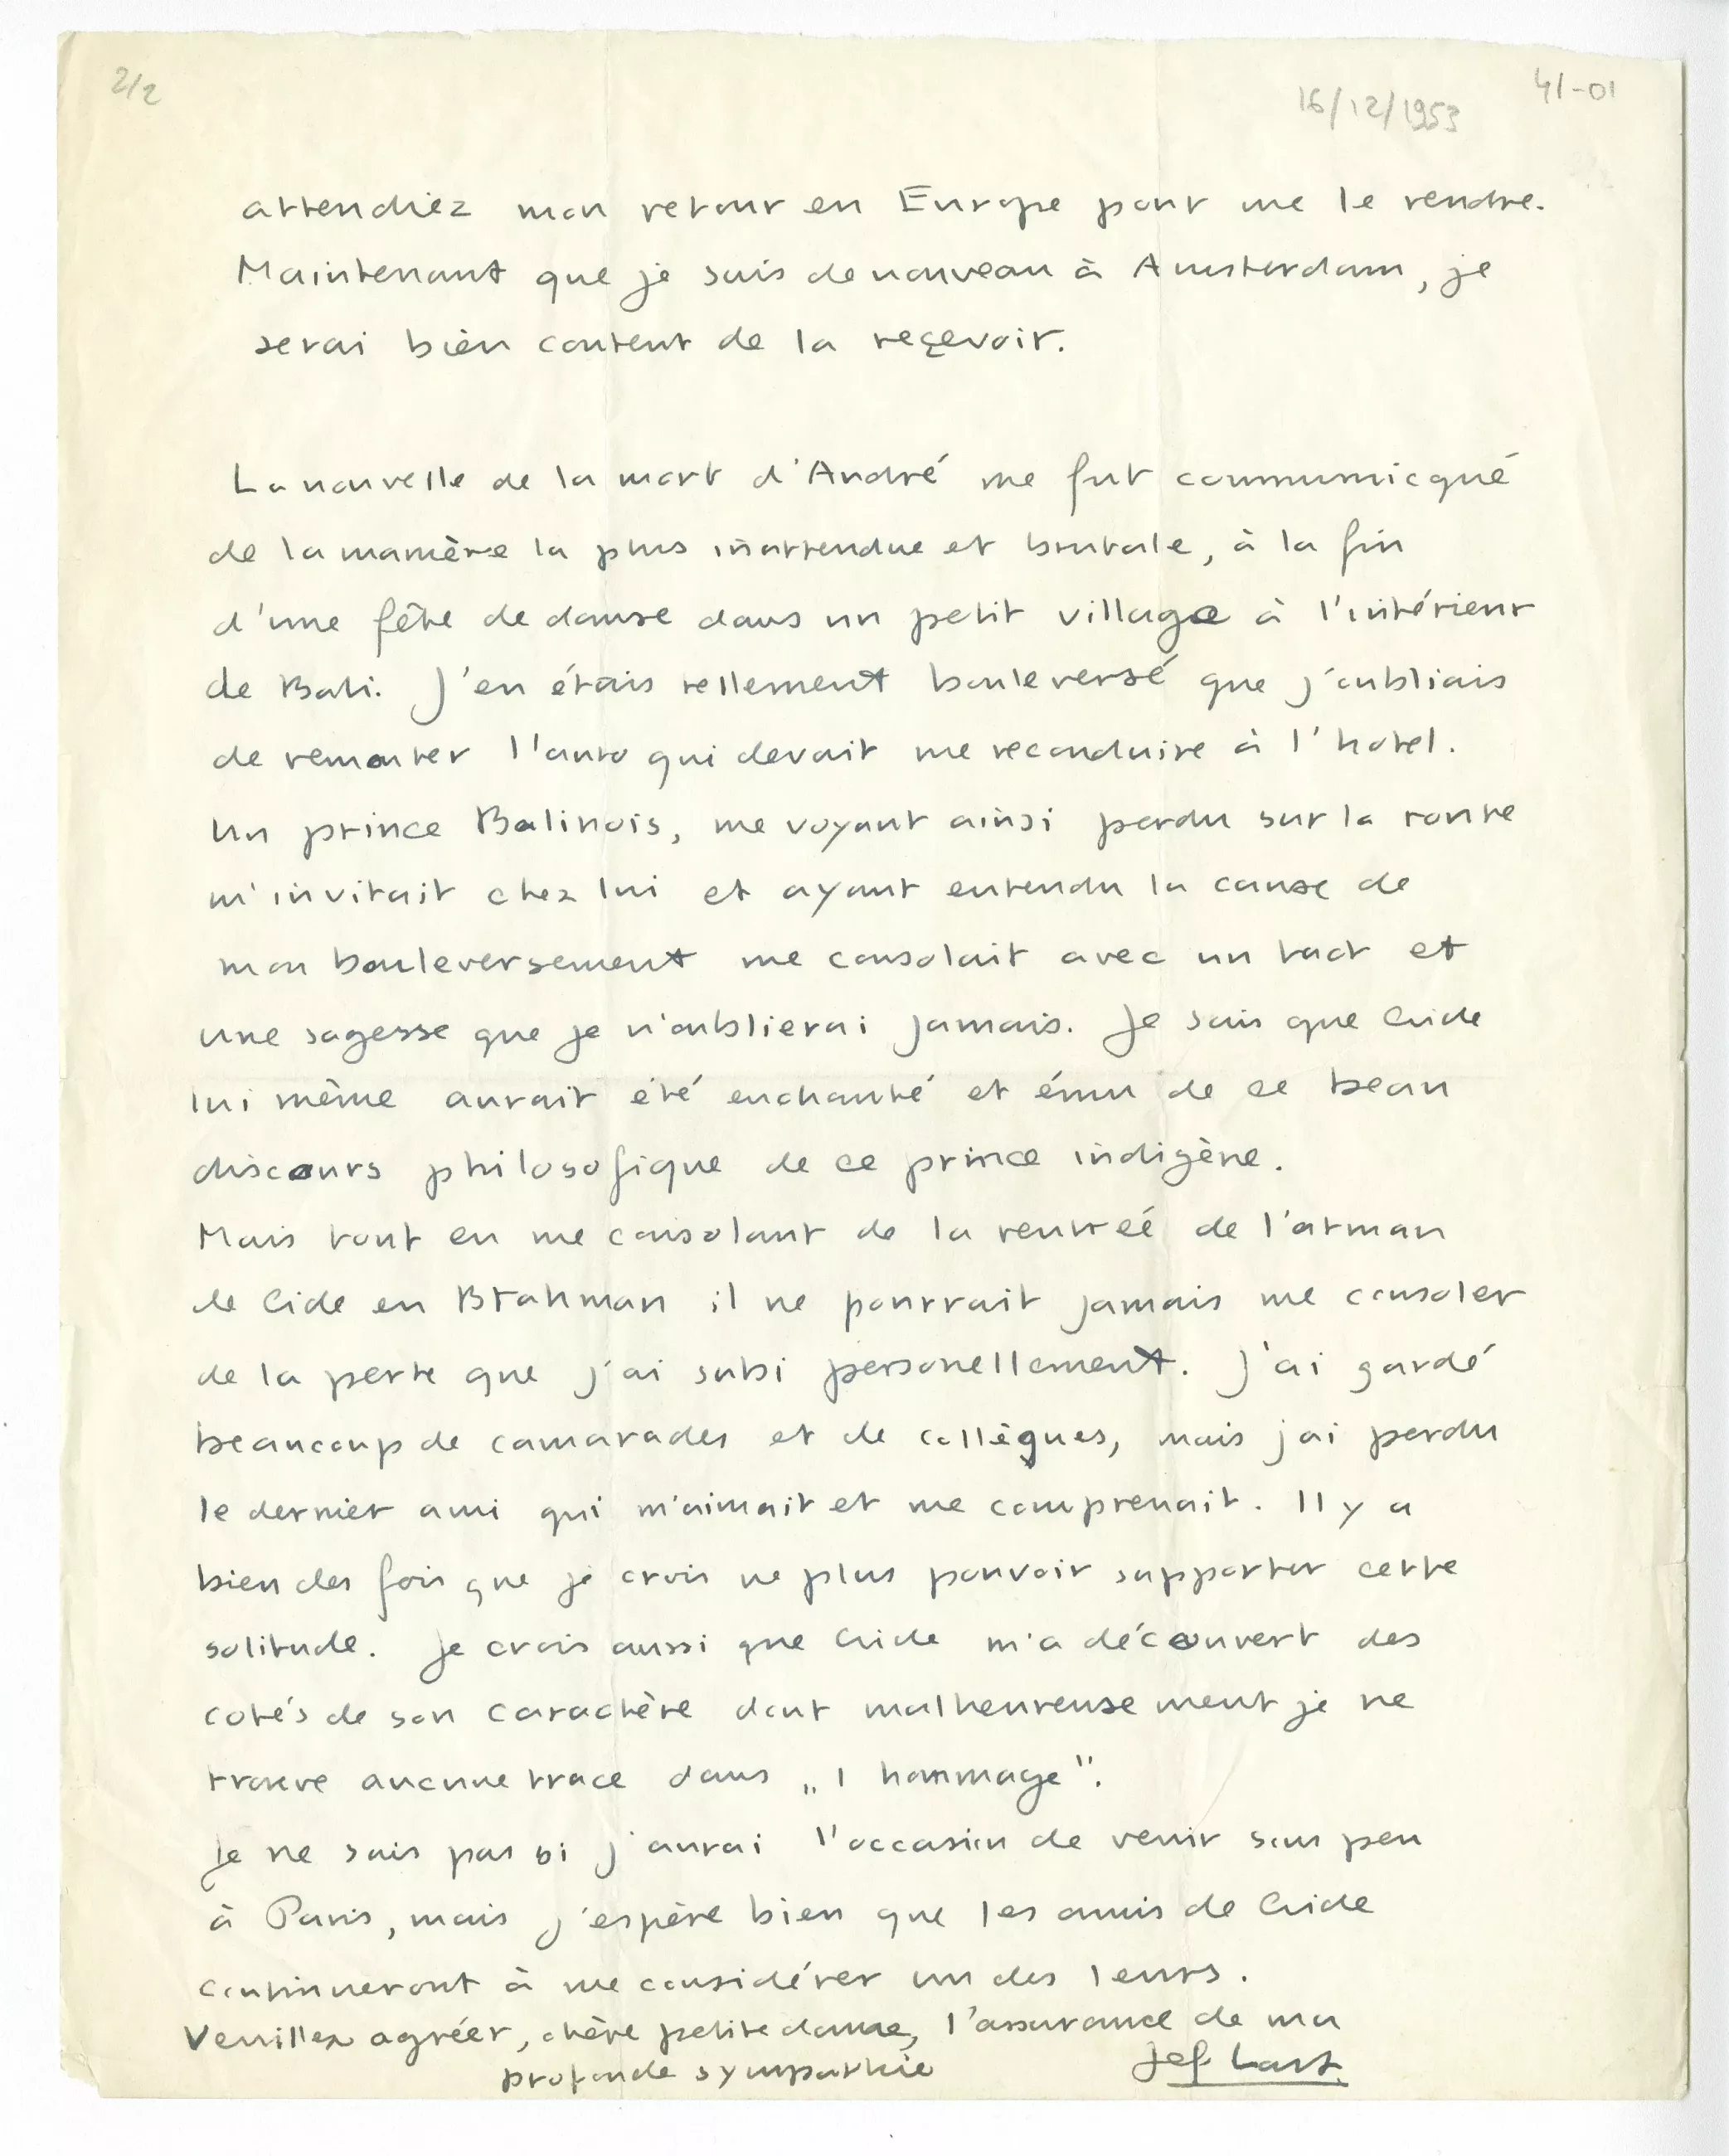 2/2
16/12/1953
41-01
attendiez mon retour en Europe pour me le rendre.
Maintenant que je suis de nouveau à Amsterdam, je
serai bien content de la reçevoir.
La nouvelle de la mort d'André me fut communicqué
de la manière la plus inattendue et brutale, à la fin
d'une fête de danse dans un petit village à l'intérieur
de Bali. J'en étais tellement bouleversé que j'oubliais
de remonter l'auto qui devait me reconduire à l'hotel.
Un prince Balinois, me voyant ainsi perdu sur la route
m'invitait chez lui et ayant entendu la cause de
mon bouleversement me consolait avec un tact et
une sagesse que je n'oublierai jamais. Je sais que Gide
lui même aurait été enchanté et ému de ce beau
discours philosofique de ce prince indigène.
Mais tout en me consolant de la rentreé de l'atman
de Gide en Brahman il ne pourrait jamais me consoler
de la perte que j'ai subi personellement. J'ai gardé
beaucoup de camarades et de collègues, mais j'ai perdu
le dernier ami qui m'aimait et me comprenait. Il y a
bien des fois que je crois ne plus pouvoir supporter cette
solitude. Je crois aussi que Gide m'a découvert des
cotés de son caractère dont malheureusement je ne
trouve aucune trace dans „l hommage".
Je ne sais pas si j'aurai l'occasion de venir sous peu
à Paris, mais j'espère bien que les amis de Gide
continueront à me considérer un des leurs.
Veuillez agréer, chère petite dame, l'assurance de ma
profonde sympathie
Jef Last.